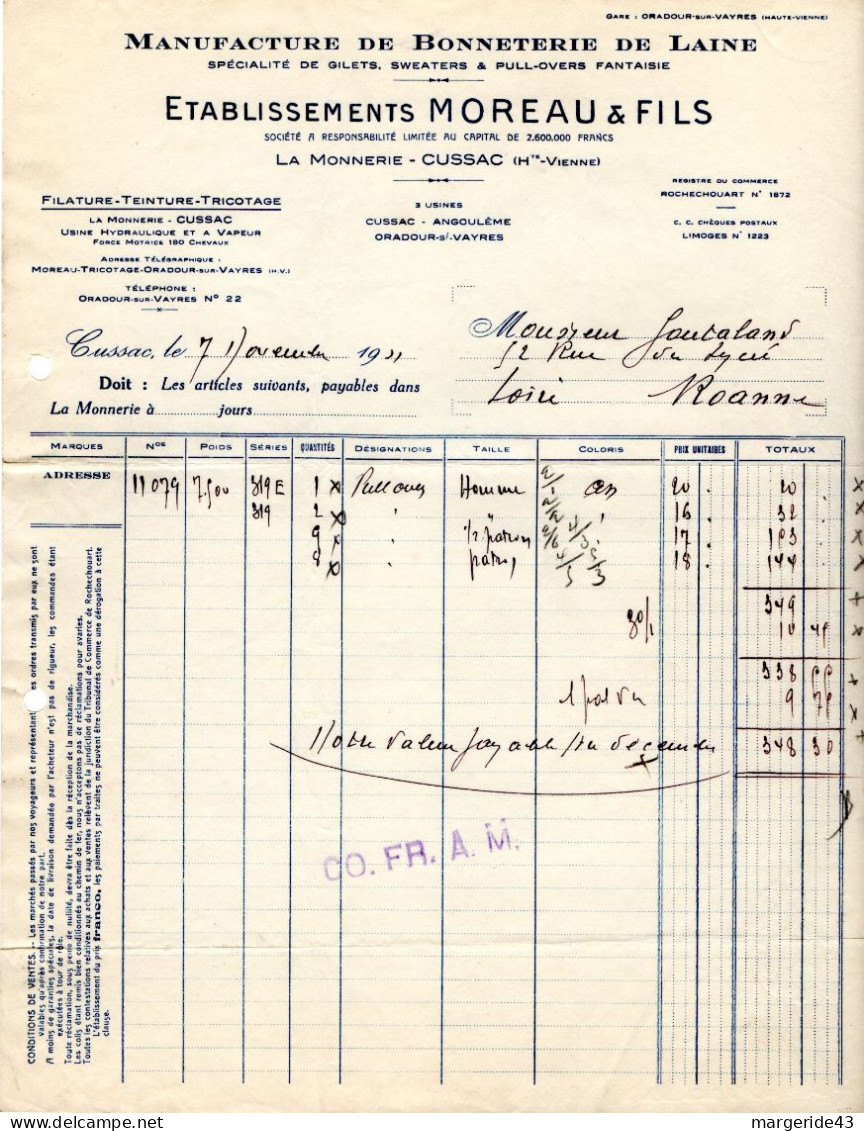 GARE : ORADOUR-SUR-VAYRES (HAUTE-VIENNE)
MANUFACTURE DE BONNETERIE DE LAINE
SPÉCIALITÉ DE GILETS, SWEATERS & PULL-OVERS FANTAISIE
ETABLISSEMENTS MOREAU & FILS
SOCIÉTÉ A RESPONSABILITÉ LIMITÉE AU CAPITAL DE 2.600.000 FRANCS
LA MONNERIE - CUSSAC (HTE-VIENNE)
FILATURE-TEINTURE-TRICOTAGE
LA MONNERIE - CUSSAC
USINE HYDRAULIQUE ET A VAPEUR
FORCE MOTRICE 180 CHEVAUX
ADRESSE TÉLÉGRAPHIQUE :
MOREAU-TRICOTAGE-ORADOUR-SUR-VAYRES (H.V.)
TÉLÉPHONE :
ORADOUR-SUR-VAYRES N° 22
3 USINES
CUSSAC - ANGOULÊME
ORADOUR-S/-VAYRES
REGISTRE DU COMMERCE
ROCHECHOUART N° 1872
C. C. CHÈQUES POSTAUX
LIMOGES N° 1223
Cussac, le 7 Novembre 1931
Doit : Les articles suivants, payables dans
La Monnerie à jours
Monsieur
52 Rue du Lycée
Loire Roanne
MARQUES NOS POIDS SÉRIES QUANTITÉS DÉSIGNATIONS TAILLE COLORIS PRIX UNITAIRES TOTAUX
ADRESSE 11079 7.500 319 E 1 x Pullover Homme 20 . 20 . x
319 2 x " " " 16 . 32 . x
9 x " 1/2 patron 17 . 153 . x
8 x " patron 18 . 144 . x
349 +
3 0/0 10 45 x
338 55 +
9 75 x
Notre valeur payable fin décembre 348 30 +
CO. FR. A. M.
CONDITIONS DE VENTES. -- Les marchés passés par nos voyageurs et représentants, les ordres transmis par eux ne sont
valables qu'après confirmation de notre part.
A moins de garanties spéciales, la date de livraison demandée par l'acheteur n'est pas de rigueur, les commandes étant
exécutées à tour de rôle.
Toute réclamation, sous peine de nullité, devra être faite dès la réception de la marchandise.
Les colis étant remis bien conditionnés au chemin de fer, nous n'acceptons pas de réclamations pour avaries.
Toutes les contestations relatives aux achats et aux ventes relèvent de la juridiction du Tribunal de Commerce de Rochechouart.
L'établissement du prix franco, les paiements par traites ne peuvent être considérés comme une dérogation à cette
clause.
margeride43